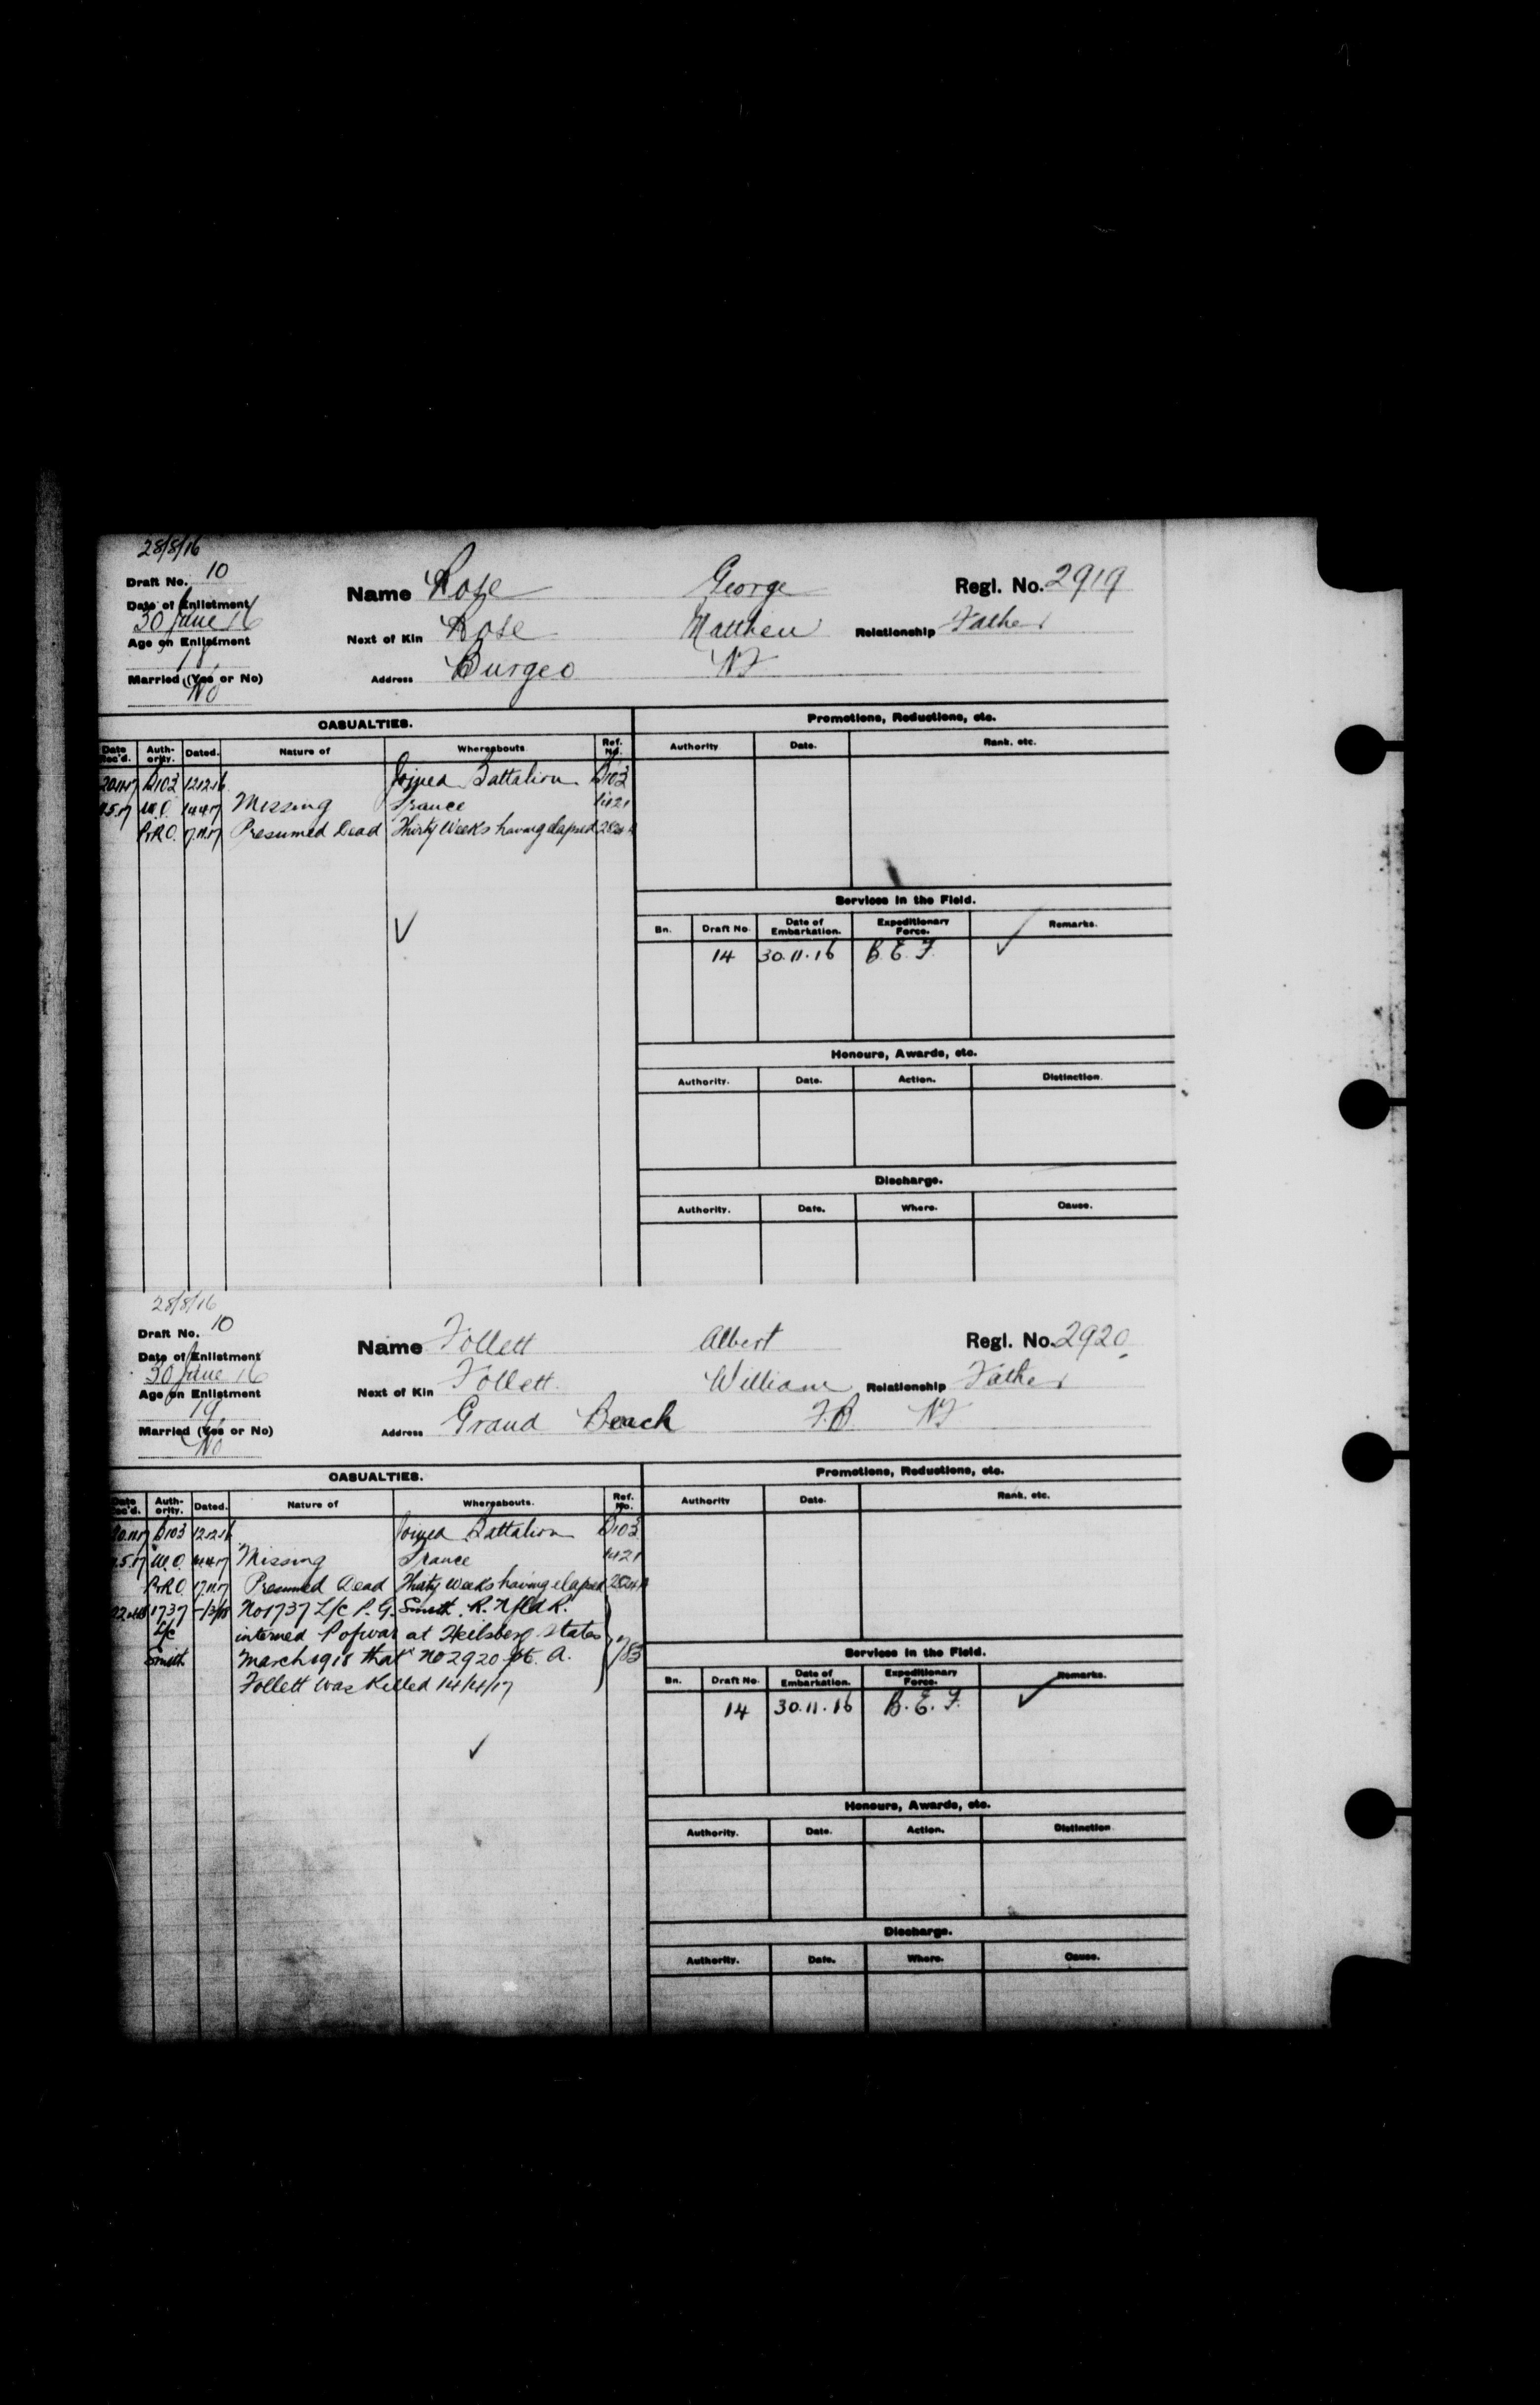 28/8/16
Draft No. 10
Name Rose George Regl. No. 2919
Date of Enlistment
30 June 16
Next of Kin Rose Matthew Relationship Father
Age on Enlistment
18
Address Burgeo NF
Married (Yes or No)
No
CASUALTIES. Promotions, Reductions, etc.
Date Rec'd. Auth-ority. Dated. Nature of Whereabouts Ref. No. Authority Date. Rank. etc.
B103 12.12.16 Joined Battalion B103
W.O. 14.4.17 Missing France 1421
P.&R.O. 17.11.17 Presumed Dead Thirty Weeks having elapsed
Services in the Field.
Bn. Draft No. Date of Embarkation. Expeditionary Force. Remarks.
14 30.11.16 B.E.F. ✓
✓
Honours, Awards, etc.
Authority. Date. Action. Distinction.
Discharge.
Authority. Date. Where. Cause.
28/8/16
Draft No. 10
Name Follett Albert Regl. No. 2920
Date of Enlistment
30 June 16
Next of Kin Follett William Relationship Father
Age on Enlistment
19
Address Grand Beach F.B. NF
Married (Yes or No)
No
CASUALTIES. Promotions, Reductions, etc.
Date Rec'd. Auth-ority. Dated. Nature of Whereabouts. Ref. No. Authority Date. Rank. etc.
B103 12.12.16 Joined Battalion B103
W.O. 14.4.17 Missing France 1421
P.&R.O. 17.11.17 Presumed Dead Thirty Weeks having elapsed
1737 -/3/18 No 1737 L/c P. G. Smith. R. Nfld R.
L/c interned P of war at Heilsberg states
Smith March 1918 that No 2920 Pte. A. 783
Follett was Killed 14/4/17
Services in the Field.
Bn. Draft No. Date of Embarkation. Expeditionary Force. Remarks.
14 30.11.16 B.E.F. ✓
✓
Honours, Awards, etc.
Authority. Date. Action. Distinction.
Discharge.
Authority. Date. Where. Cause.